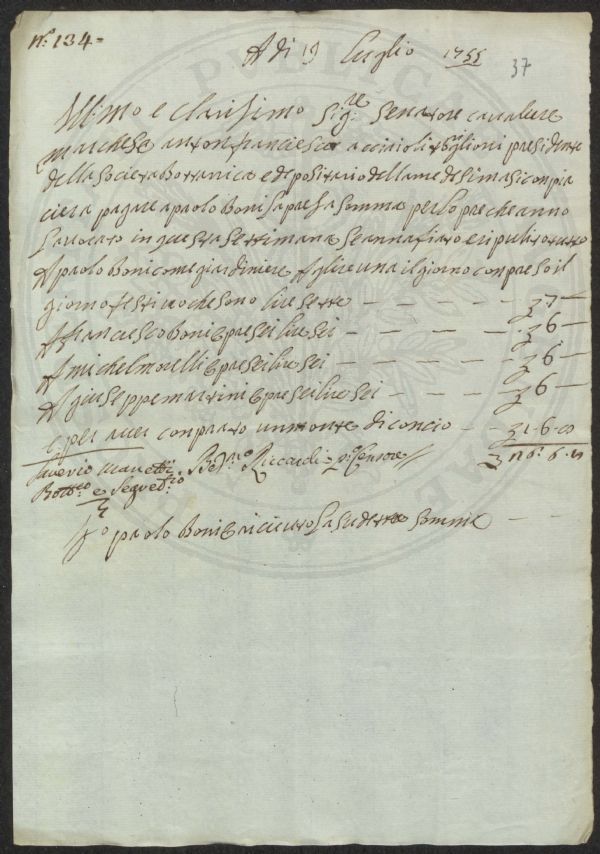 No. 134=
A di 19 Luglio 1755
37
Ill:mo e Clarissimo Sig:re Senatore Cavaliere
Marchese Anton franciesco acciaioli presidente
della Societa Bottanica e depositario della medesima si conpia
ciera pagare a paolo Boni la presa somma per lo pre che anno
Lavorato in questa settimana se annafiato e ripulito tutto
A paolo Boni come giardiniere A lire una il giorno conpreso il
giorno festivo che sono lire sette — — — — 7 —
A franciesco Boni e pre sei lire sei — — — — 6 —
A michel morelli e pre sei lire sei — — — — 6 —
A giuseppe martini e pre sei lire sei — — — — 6 —
e per aver conprato un monte di concio — — 1 - 6 -
Saverio Manetti Riccardi Censore
Bott:co e Segret:rio
Io paolo Boni o riceuto la sudetta somma — —
PUBLICA